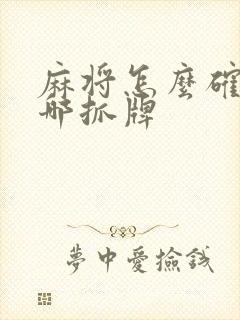 麻将怎麼確
哪抓牌
夢中愛撿錢